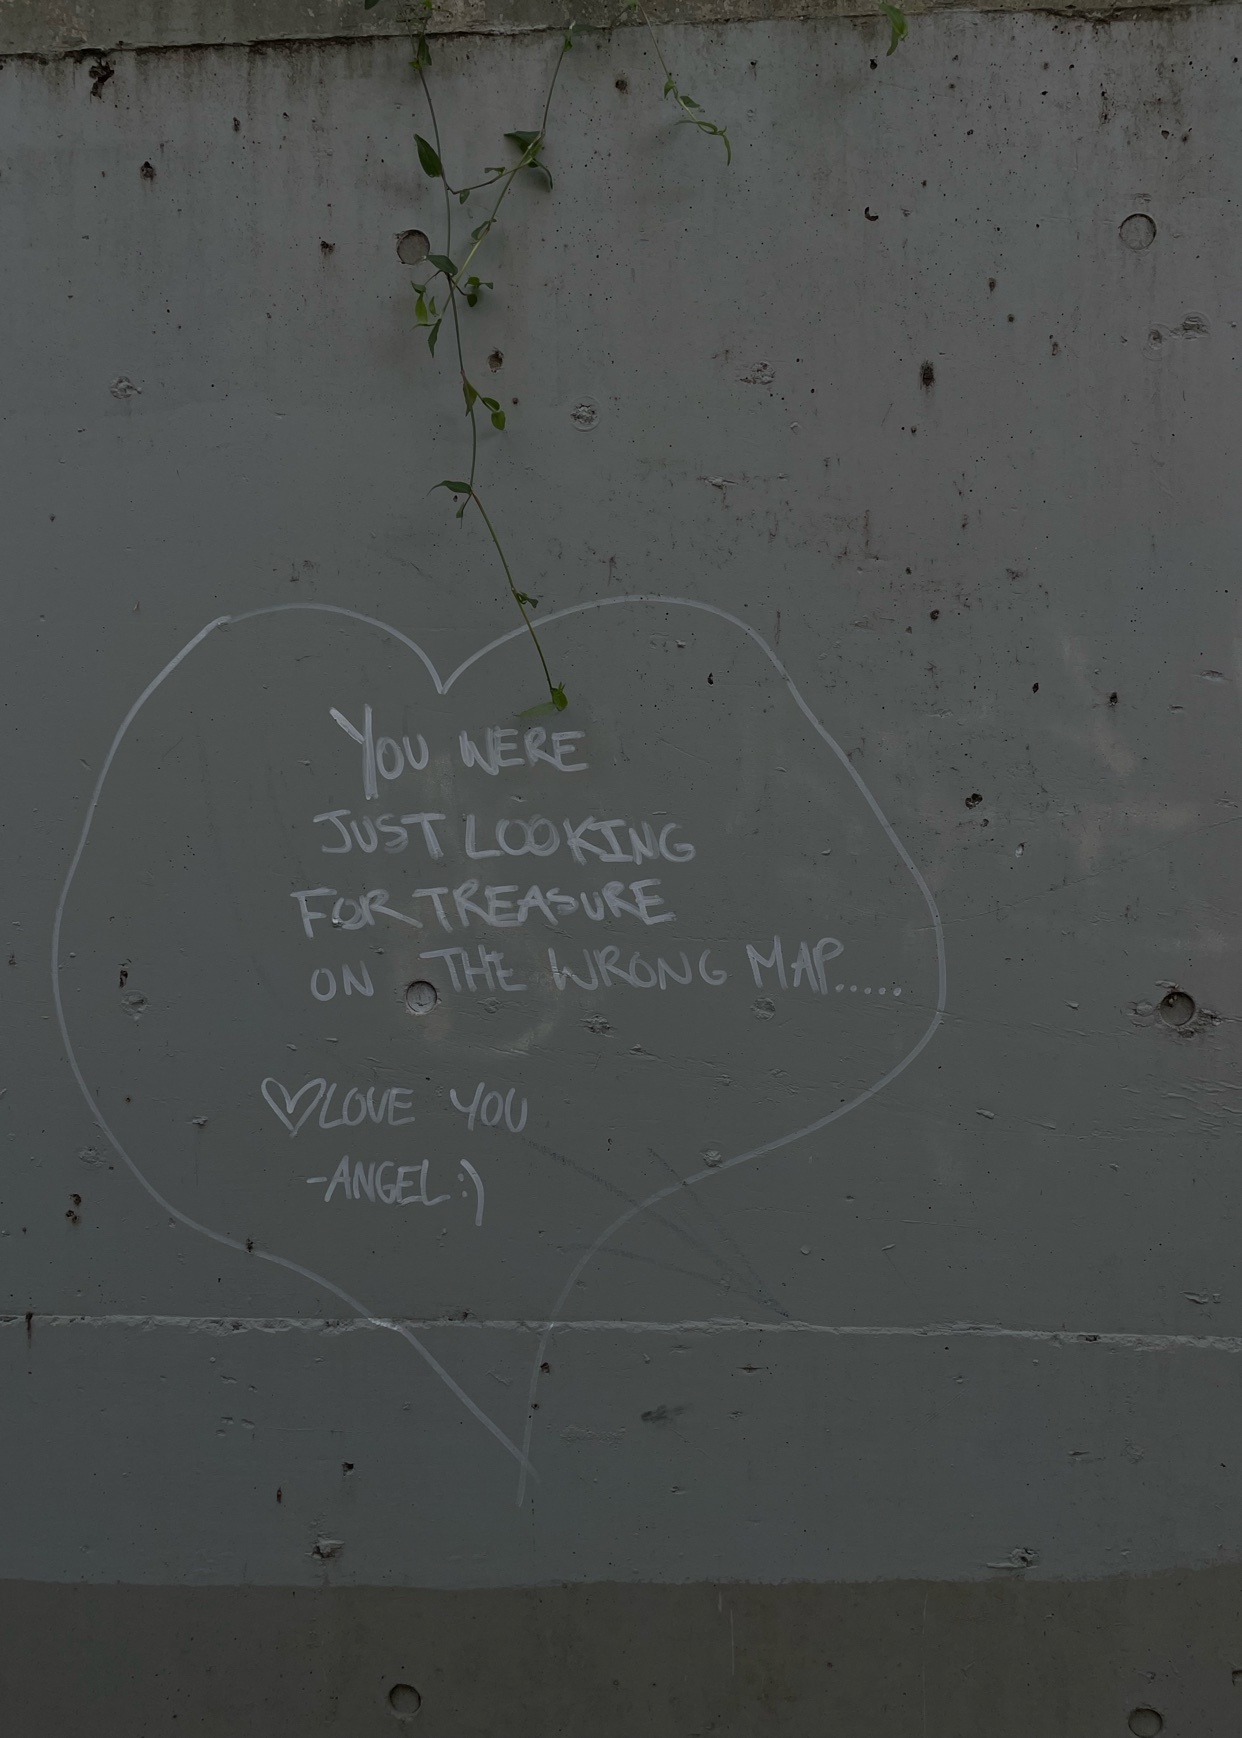 YOU WERE
JUST LOOKING
FOR TREASURE
ON THE WRONG MAP.....
♡LOVE YOU
-ANGEL:)